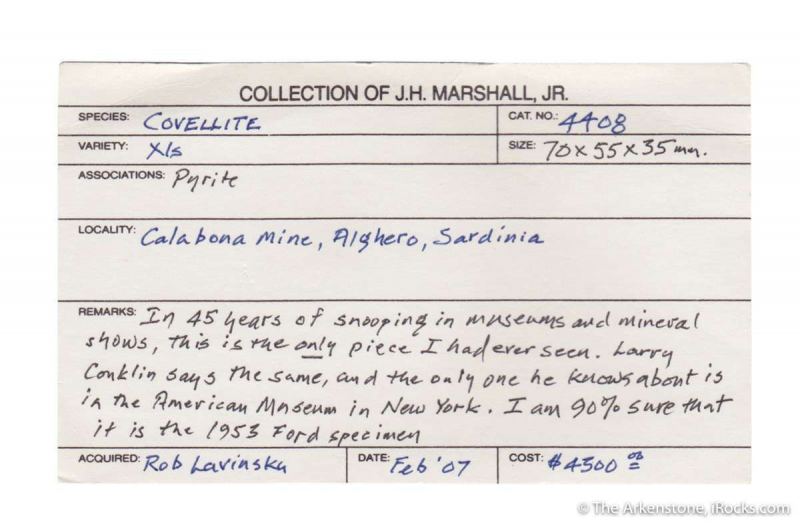 COLLECTION OF J.H. MARSHALL, JR.
SPECIES: COVELLITE CAT. NO.: 4408
VARIETY: Xls SIZE: 70 x 55 x 35 mm.
ASSOCIATIONS: Pyrite
LOCALITY: Calabona Mine, Alghero, Sardinia
REMARKS: In 45 years of snooping in museums and mineral
shows, this is the only piece I had ever seen. Larry
Conklin says the same, and the only one he knows about is
in the American Museum in New York. I am 90% sure that
it is the 1953 Ford specimen
ACQUIRED: Rob Lavinsky DATE: Feb '07 COST: $4300 00
© The Arkenstone, iRocks.com